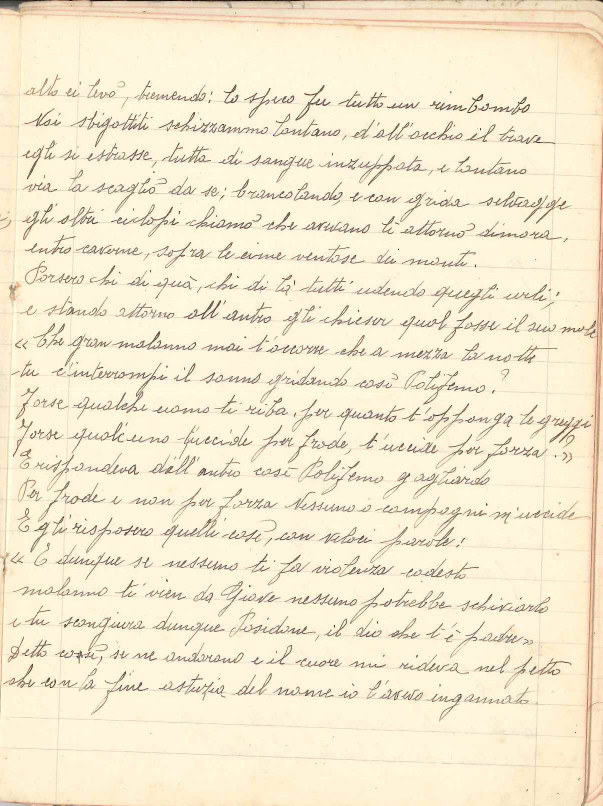 alto ei levò, tremendo: lo speco fu tutto un rimbombo
Noi sbigottiti schizzammo lontano, d'all'occhio il trave
egli si estrasse, tutta di sangue inzuppata, e lontano
via la scagliò da se; brancolando, e con grida selvagge
gli altri ciclopi chiamò che avevano lì attorno dimora,
entro caverne, sopra le cime ventose dei monti.
Corsero chi di quà, chi di là tutti udendo quegli urli;
e stando attorno all'antro gli chieser qual fosse il suo male
« Che gran malanno mai t'occorre che a mezza la notte
tu c'interrompi il sonno gridando così Polifemo?
Forse qualche uomo ti ruba, per quanto t'opponga le greggi
Forse qualcuno t'uccide per frode, t'uccide per forza?»
E rispondeva dall'antro così Polifemo gagliardo
Per frode e non per forza Nessuno o compagni m'uccide
E gli risposero quelli così, con veloci parole:
« E dunque se nessuno ti fa violenza codesto
malanno ti vien da Giove nessuno potrebbe schivarlo
e tu scongiura dunque Posidone, il dio che t'è padre»
Detto così, se ne andarono e il cuore mi rideva nel petto
che con la fine astuzia del nome io l'avevo ingannato.